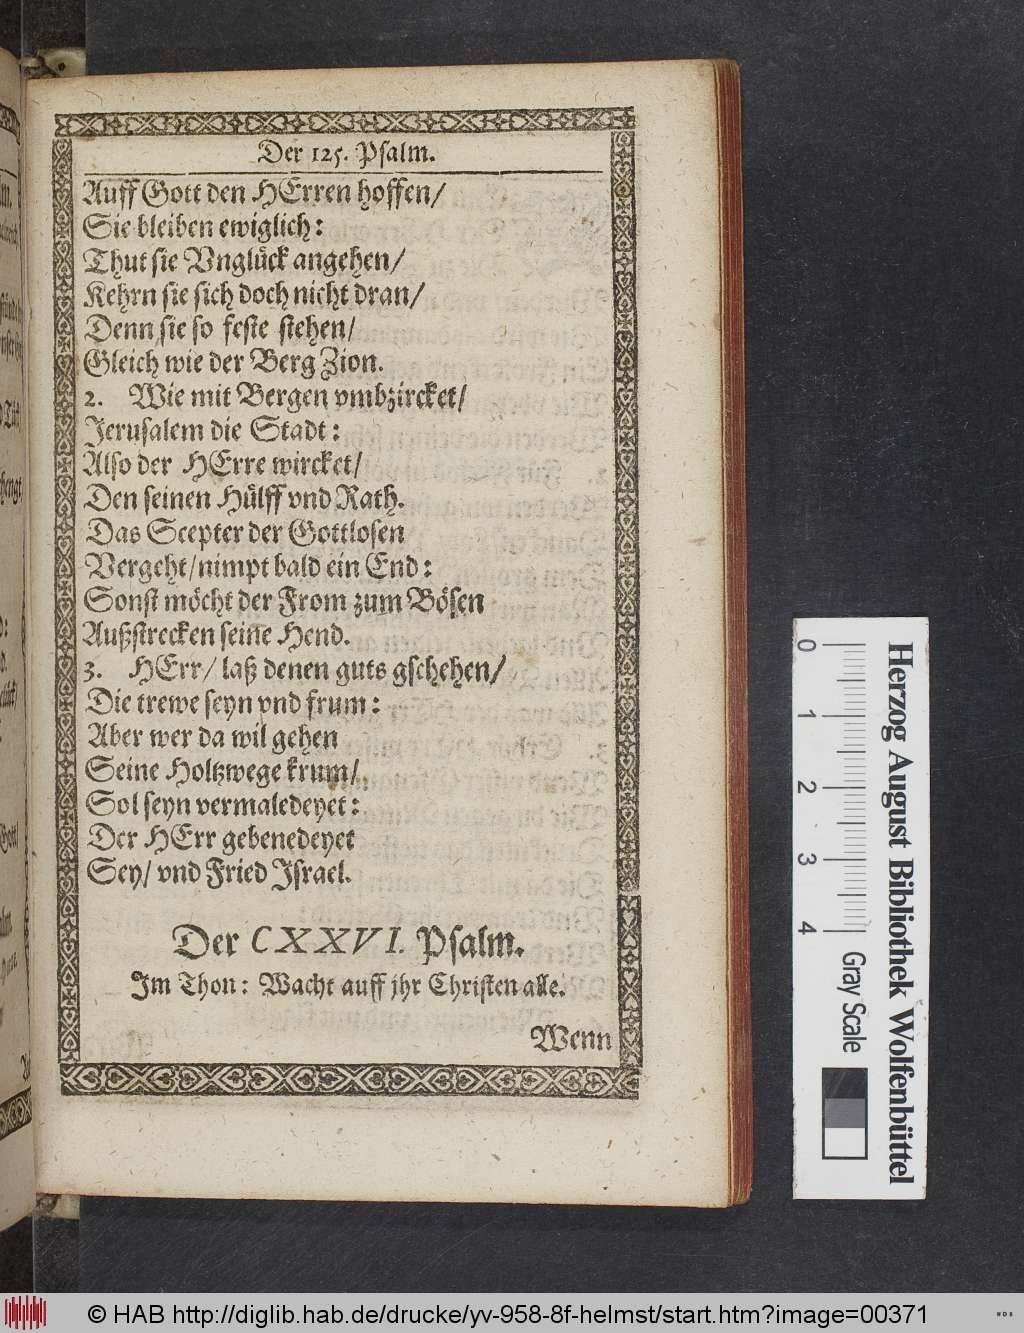 Der 125. Psalm.
Auff Gott den HErren hoffen/
Sie bleiben ewiglich:
Thut sie Vnglück angehen/
Kehrn sie sich doch nicht dran/
Denn sie so feste stehen/
Gleich wie der Berg Zion.
2. Wie mit Bergen vmbzircket/
Jerusalem die Stadt:
Also der HErre wircket/
Den seinen Hülff vnd Rath.
Das Scepter der Gottlosen
Vergeht/nimpt bald ein End:
Sonst möcht der From zum Bösen
Außstrecken seine Hend.
3. HErr/ laß denen guts gschehen/
Die trewe seyn vnd frum:
Aber wer da wil gehen
Seine Holtzwege krum/
Sol seyn vermaledeyet:
Der HErr gebenedeyet
Sey/ vnd Fried Jsrael.
Der CXXVI. Psalm.
Im Thon: Wacht auff jhr Christen alle.
Wenn
0 1 2 3 4
Herzog August Bibliothek Wolfenbüttel
Gray Scale
© HAB http://diglib.hab.de/drucke/yv-958-8f-helmst/start.htm?image=00371